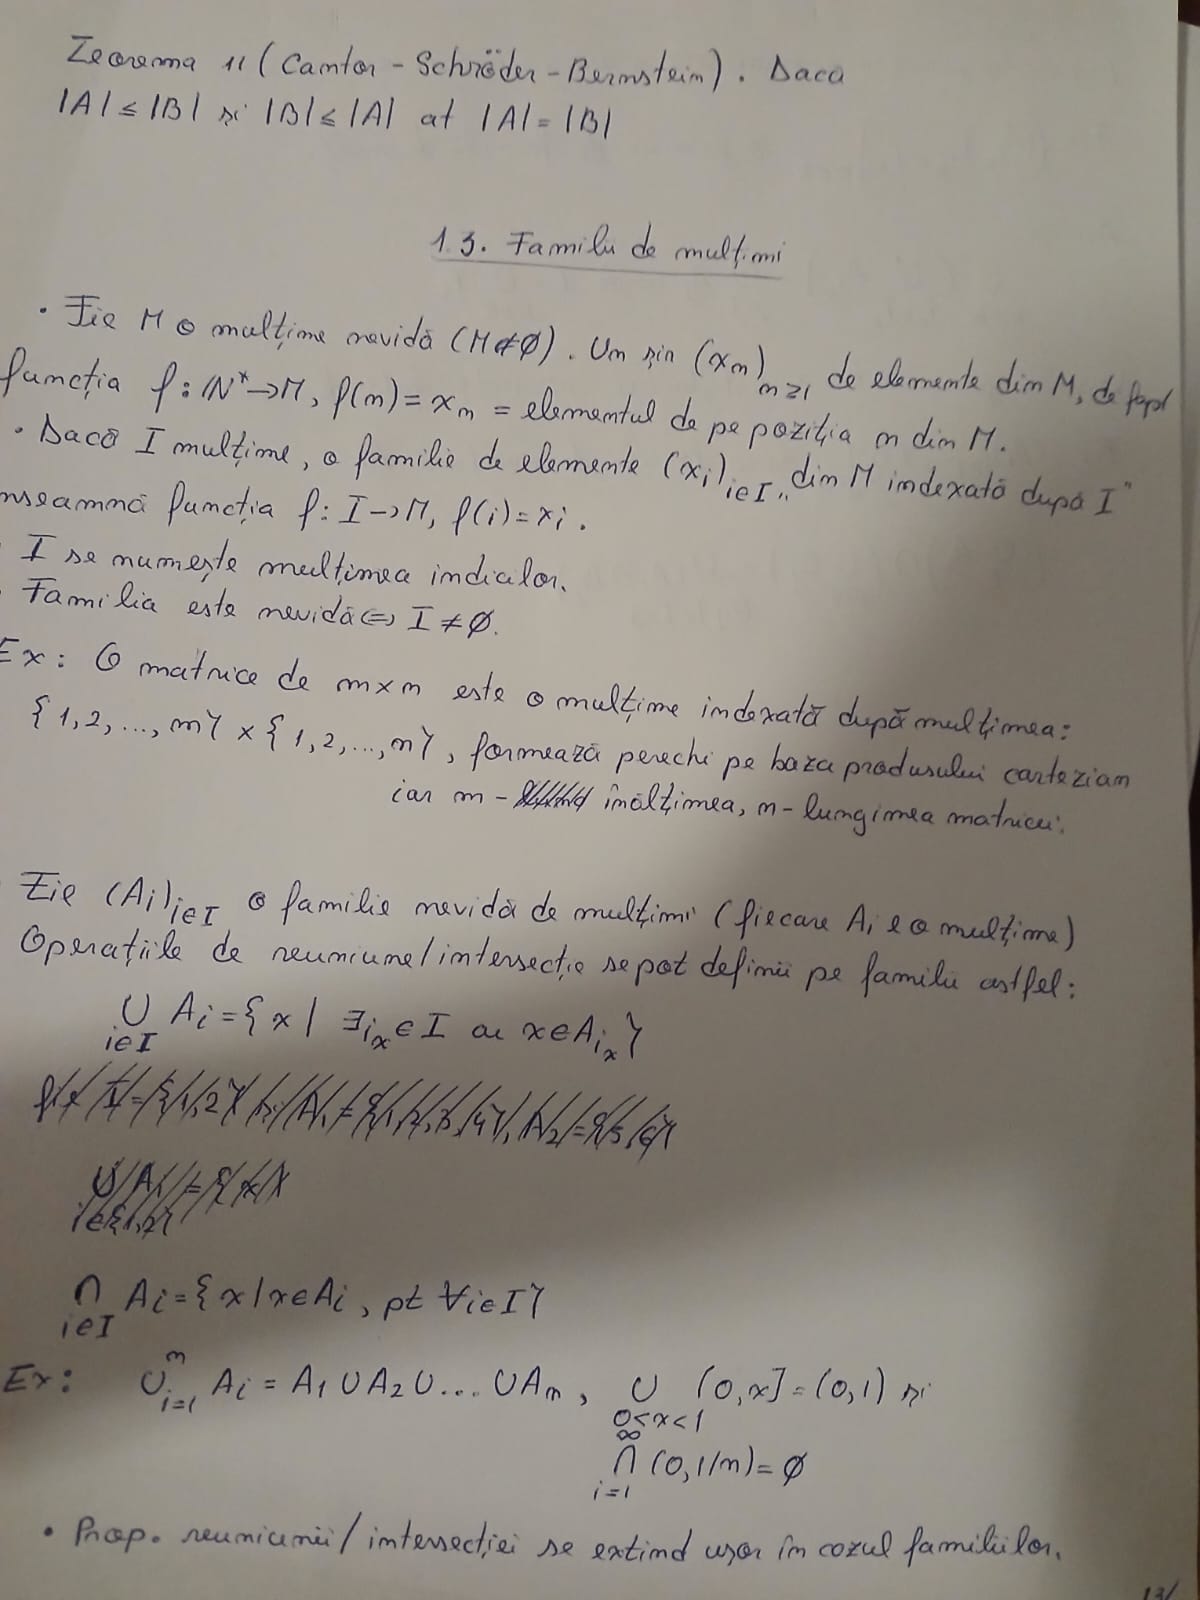 Teorema 11 (Cantor - Schröder - Bernstein). Daca
|A| ≤ |B| și |B| ≤ |A| at |A| = |B|
1.3. Familii de mulțimi
• Fie M o mulțime nevidă (M≠∅). Un șir (xₙ)ₙ≥₁ de elemente din M, de fapt
funcția f: ℕ*→M, f(n) = xₙ = elementul de pe poziția n din M.
• Dacă I mulțime, o familie de elemente (xᵢ)ᵢ∈I „din M indexată după I"
înseamnă funcția f: I→M, f(i)=xᵢ.
• I se numește mulțimea indicilor.
• Familia este nevidă ⇔ I ≠ ∅.
Ex: O matrice de m×n este o mulțime indexată după mulțimea:
{1,2,...,m} × {1,2,...,n}, formează perechi pe baza produsului cartezian
iar m - înălțimea, n - lungimea matricei.
• Fie (Aᵢ)ᵢ∈I o familie nevidă de mulțimi (fiecare Aᵢ e o mulțime)
Operațiile de reuniune/intersecție se pot definii pe familii astfel:
∪ Aᵢ = {x | ∃ iₓ ∈ I aî x ∈ A_iₓ}
i∈I
fie I={1,2} și A₁={1,2,3,4}, A₂={5,6}
∪ Aᵢ = {x |
i∈{1,2}
∩ Aᵢ = {x | x∈Aᵢ, pt ∀i∈I}
i∈I
Ex: ∪ⁿᵢ₌₁ Aᵢ = A₁ ∪ A₂ ∪ ... ∪ Aₙ, ∪ (0,x] = (0,1) și
0<x<1
∞
∩ (0,1/n) = ∅
i=1
• Prop. reuniunii/intersecției se extind ușor în cazul familiilor.
13/